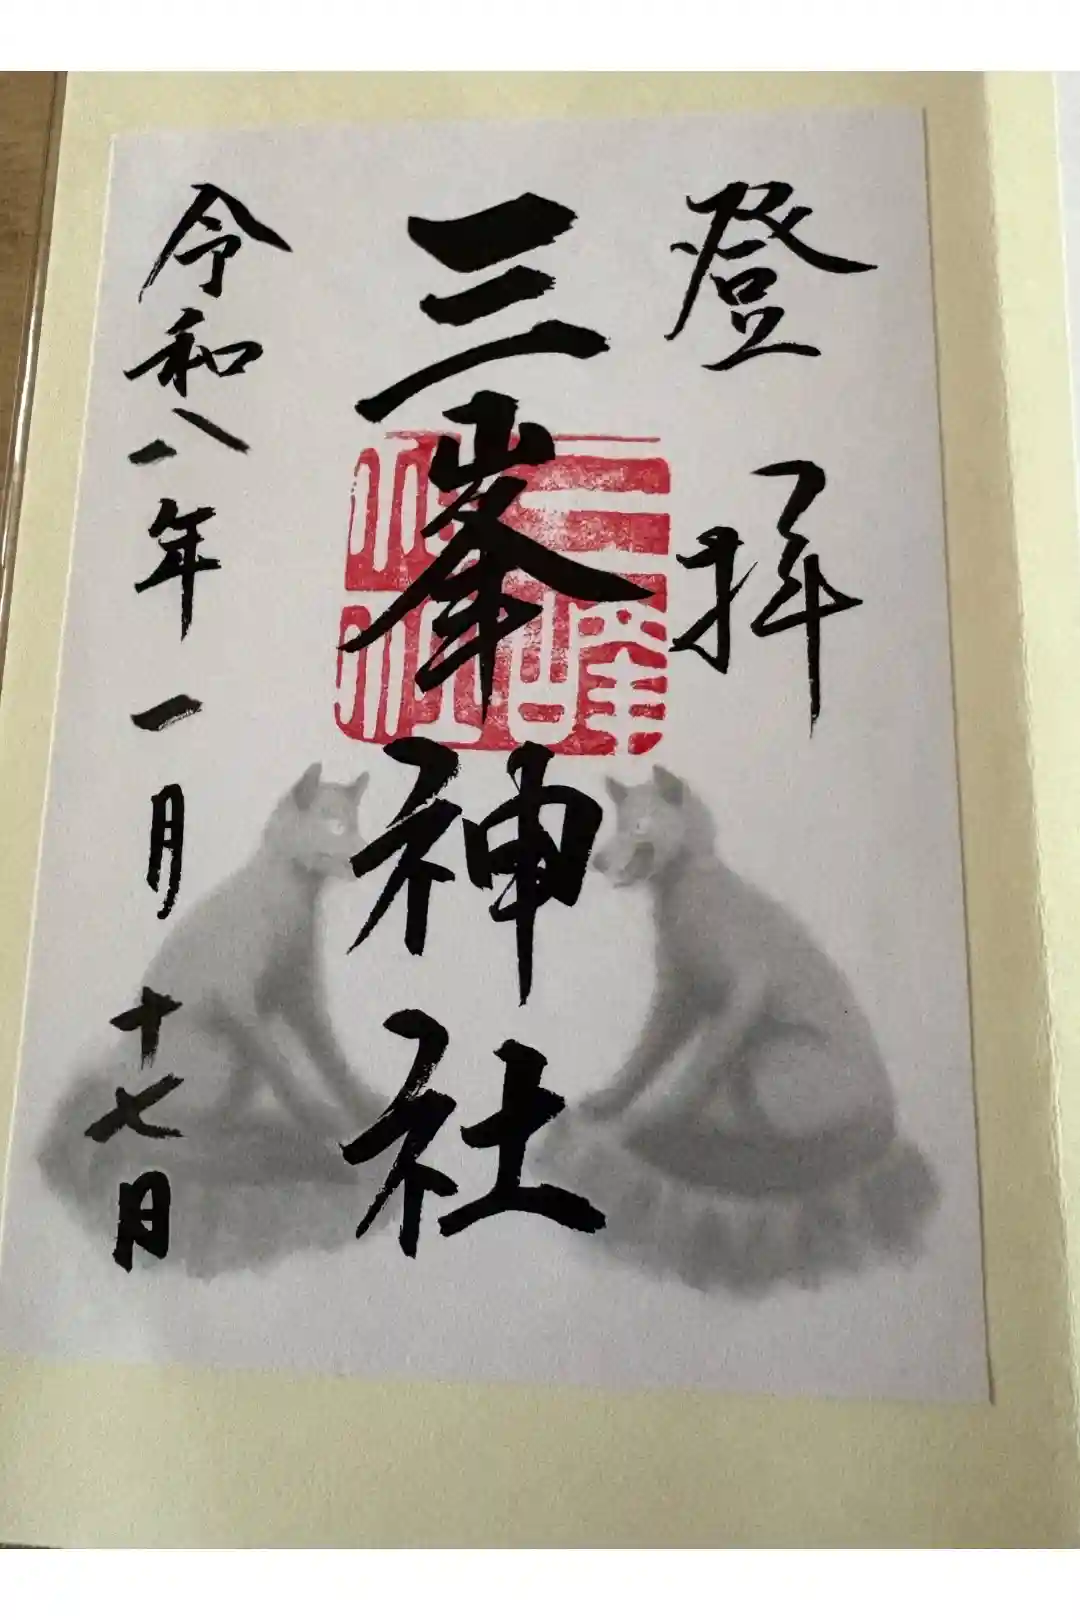 登拝
三峯神社
三峰神社
令和八年一月十七日